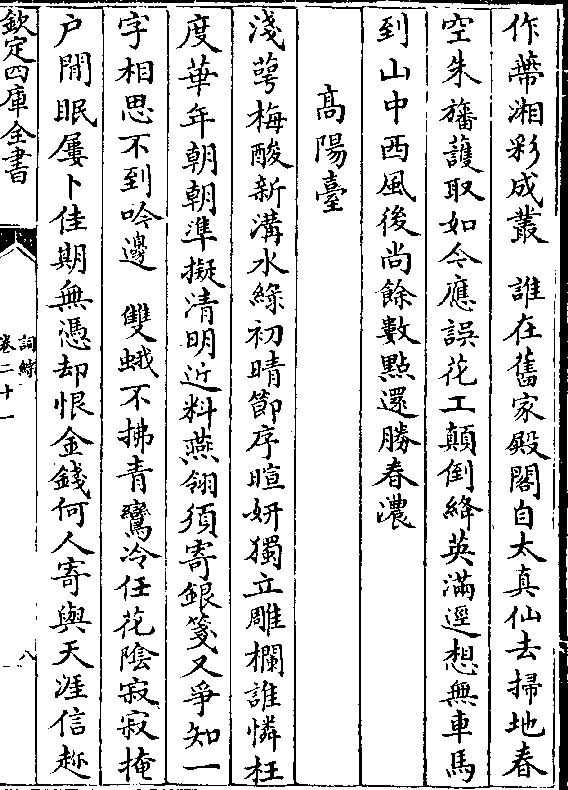 作蘂湘彩成叢　誰在舊家殿閣自太真仙去掃地春
空朱旛護取如今應誤花工顛倒絳英滿逕想無車馬
到山中西風後尚餘數點還勝春濃
高陽臺
淺萼梅酸新溝水綠初晴節序暄妍獨立雕欄誰憐枉
度華年朝朝準擬清明近料燕翎須寄銀箋又爭知一
字相思不到吟邊　雙蛾不拂青鸞冷任花陰寂寂掩
户閒眠屢卜佳期無憑却恨金錢何人寄與天涯信趂
欽定四庫全書
詞綜
卷二十一
八